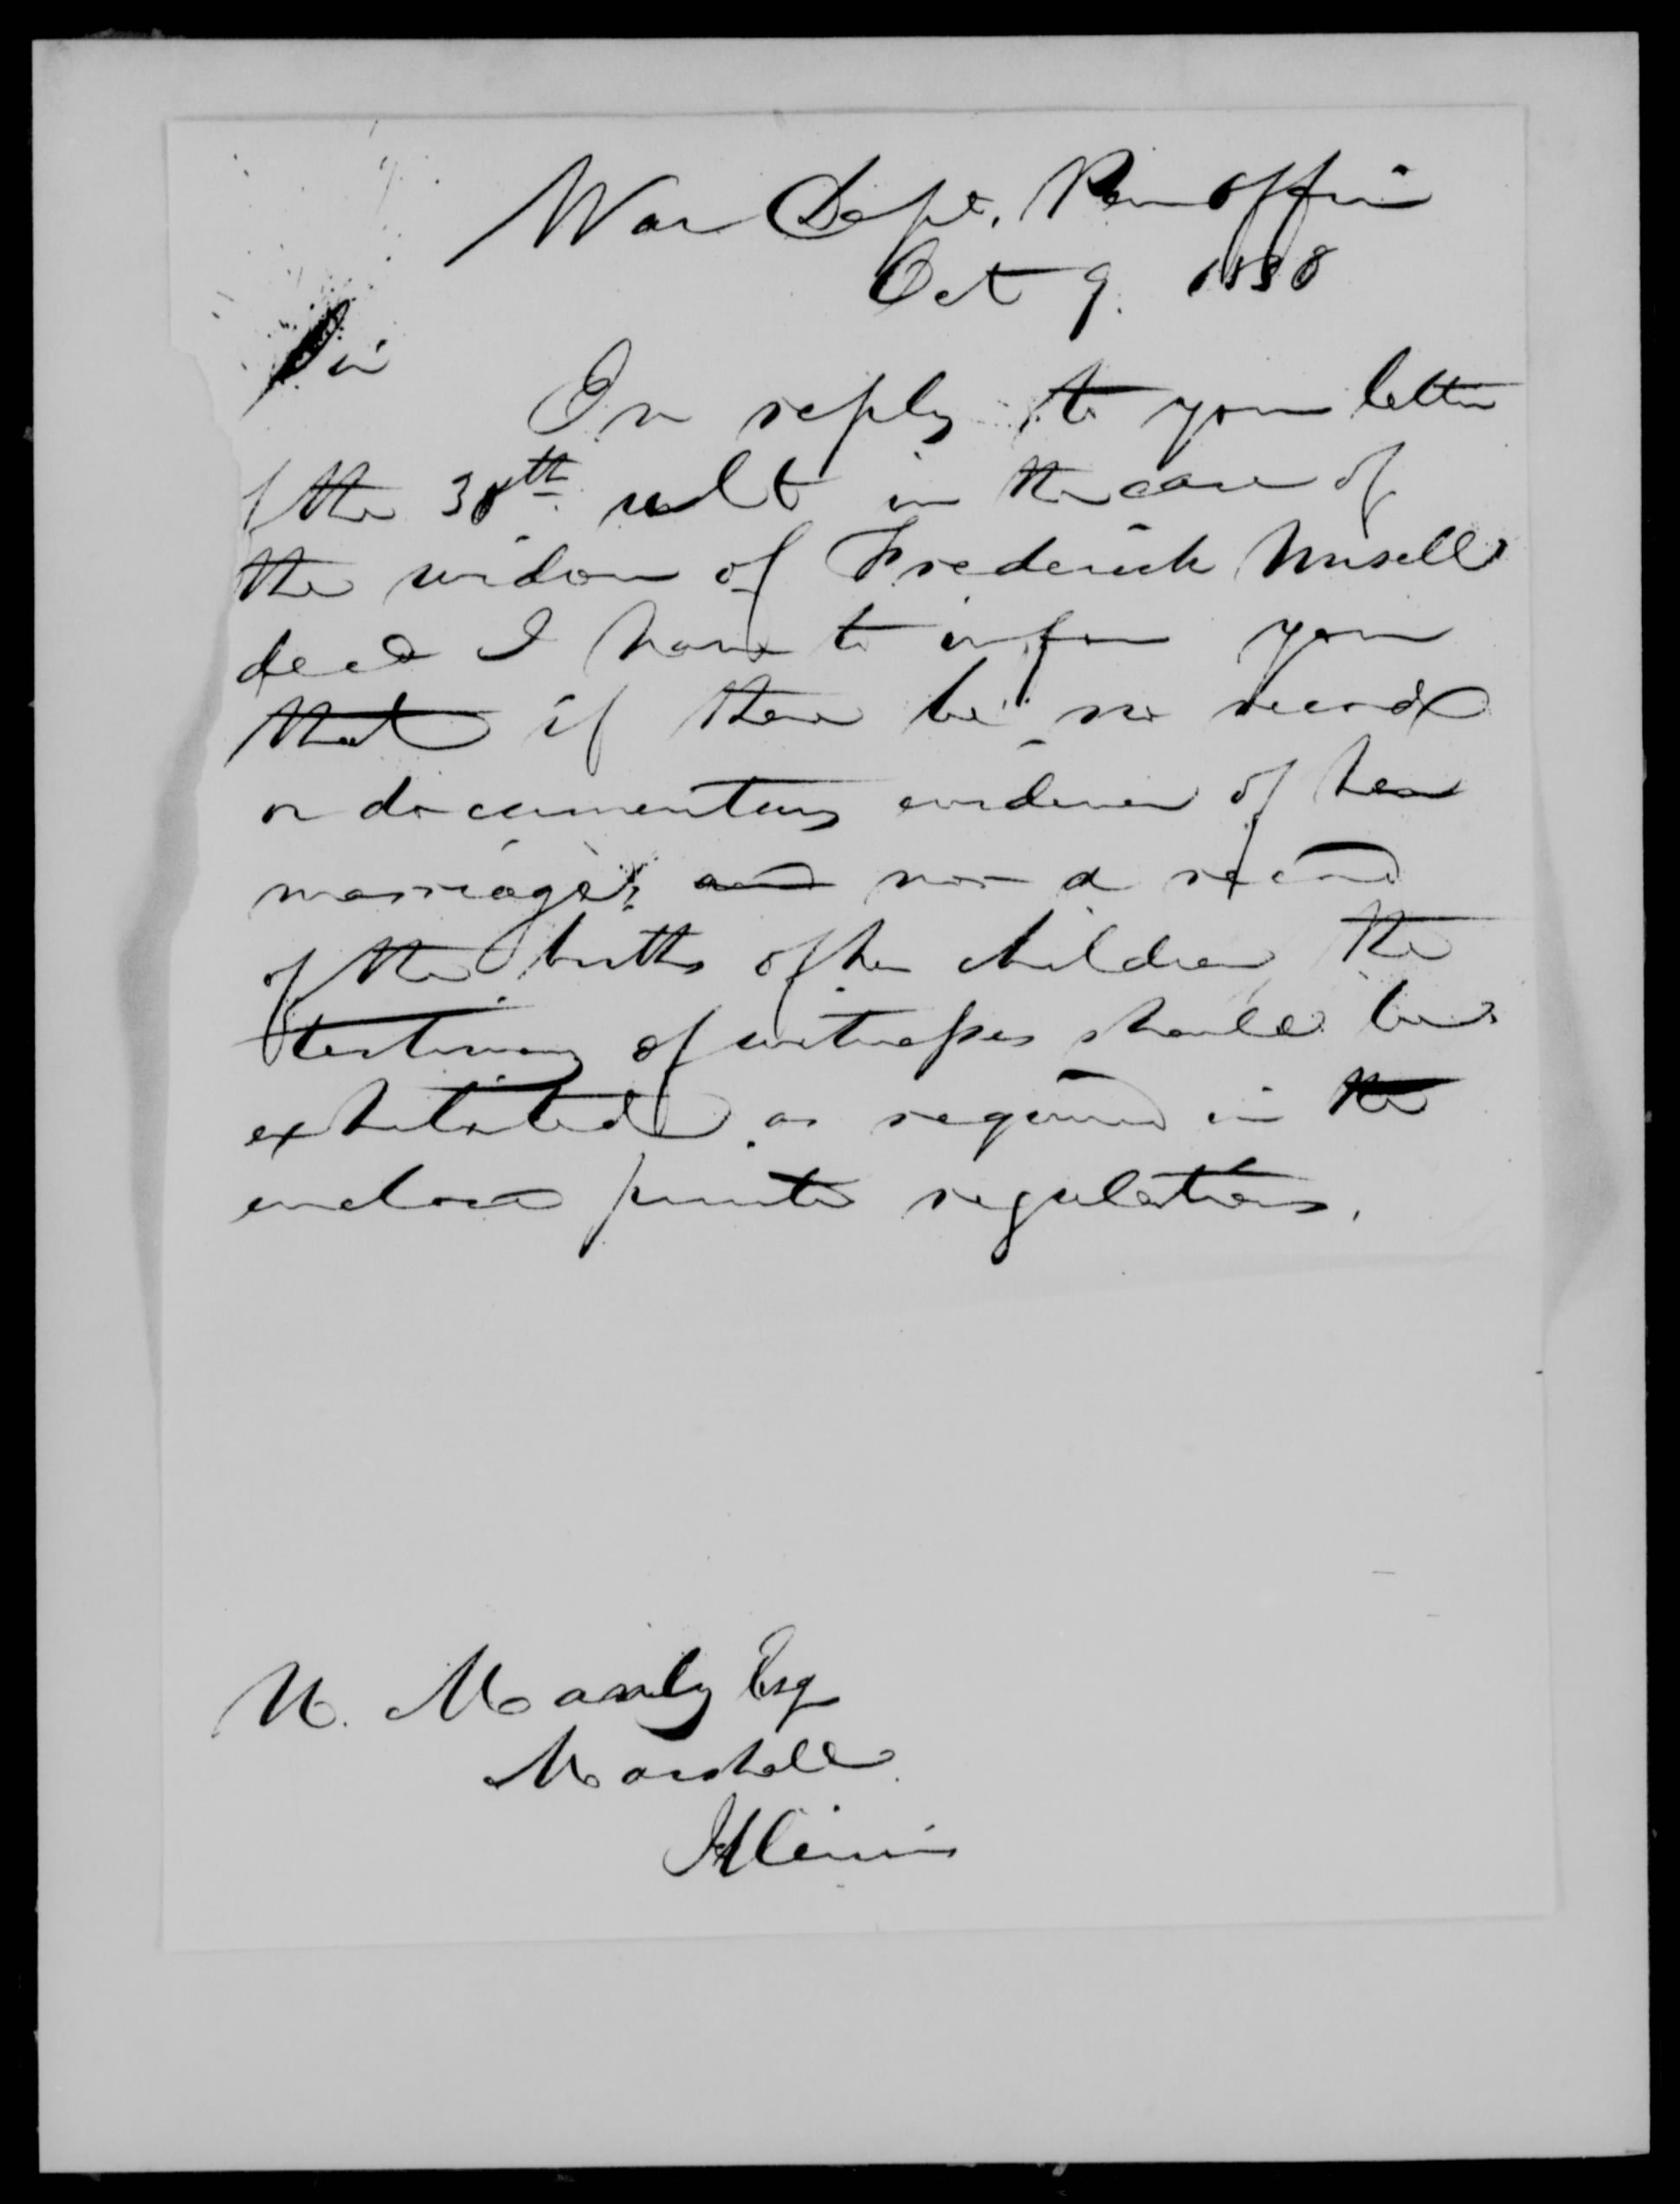 War Dept. Pen Office
Oct 9. 1838
Sir
In reply to your letter
of the 30th ult in the case of
the widow of Frederick
decd I have to inform you
that if there be no record
or documentary evidence of her
marriage, nor a record
of the births of her children the
testimony of witnesses should be
exhibited as required in the
enclosed printed regulations.
U. Manly Esq
Marshall
Illinois